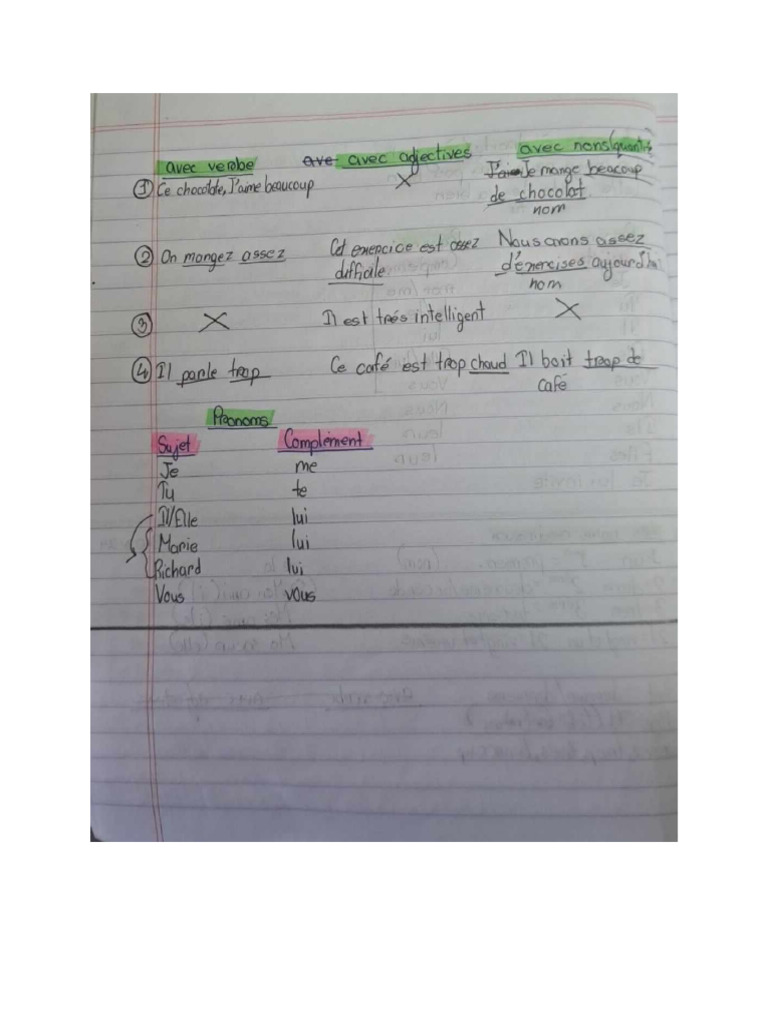 avec verbe avec adjectives avec nons(quanti
① Ce chocolate, J'aime beaucoup X Je mange beacoup
de chocolat
nom
② On mangez assez Cet exercice est assez Nous avons assez
difficile d'exercises aujourd'hui
nom
③ X Il est trés intelligent X
④ Il parle trop Ce café est trop chaud Il boit trop de
café
Pronoms
Sujet Complément
Je me
Tu te
Il/Elle lui
Marie lui
Richard lui
Vous vous